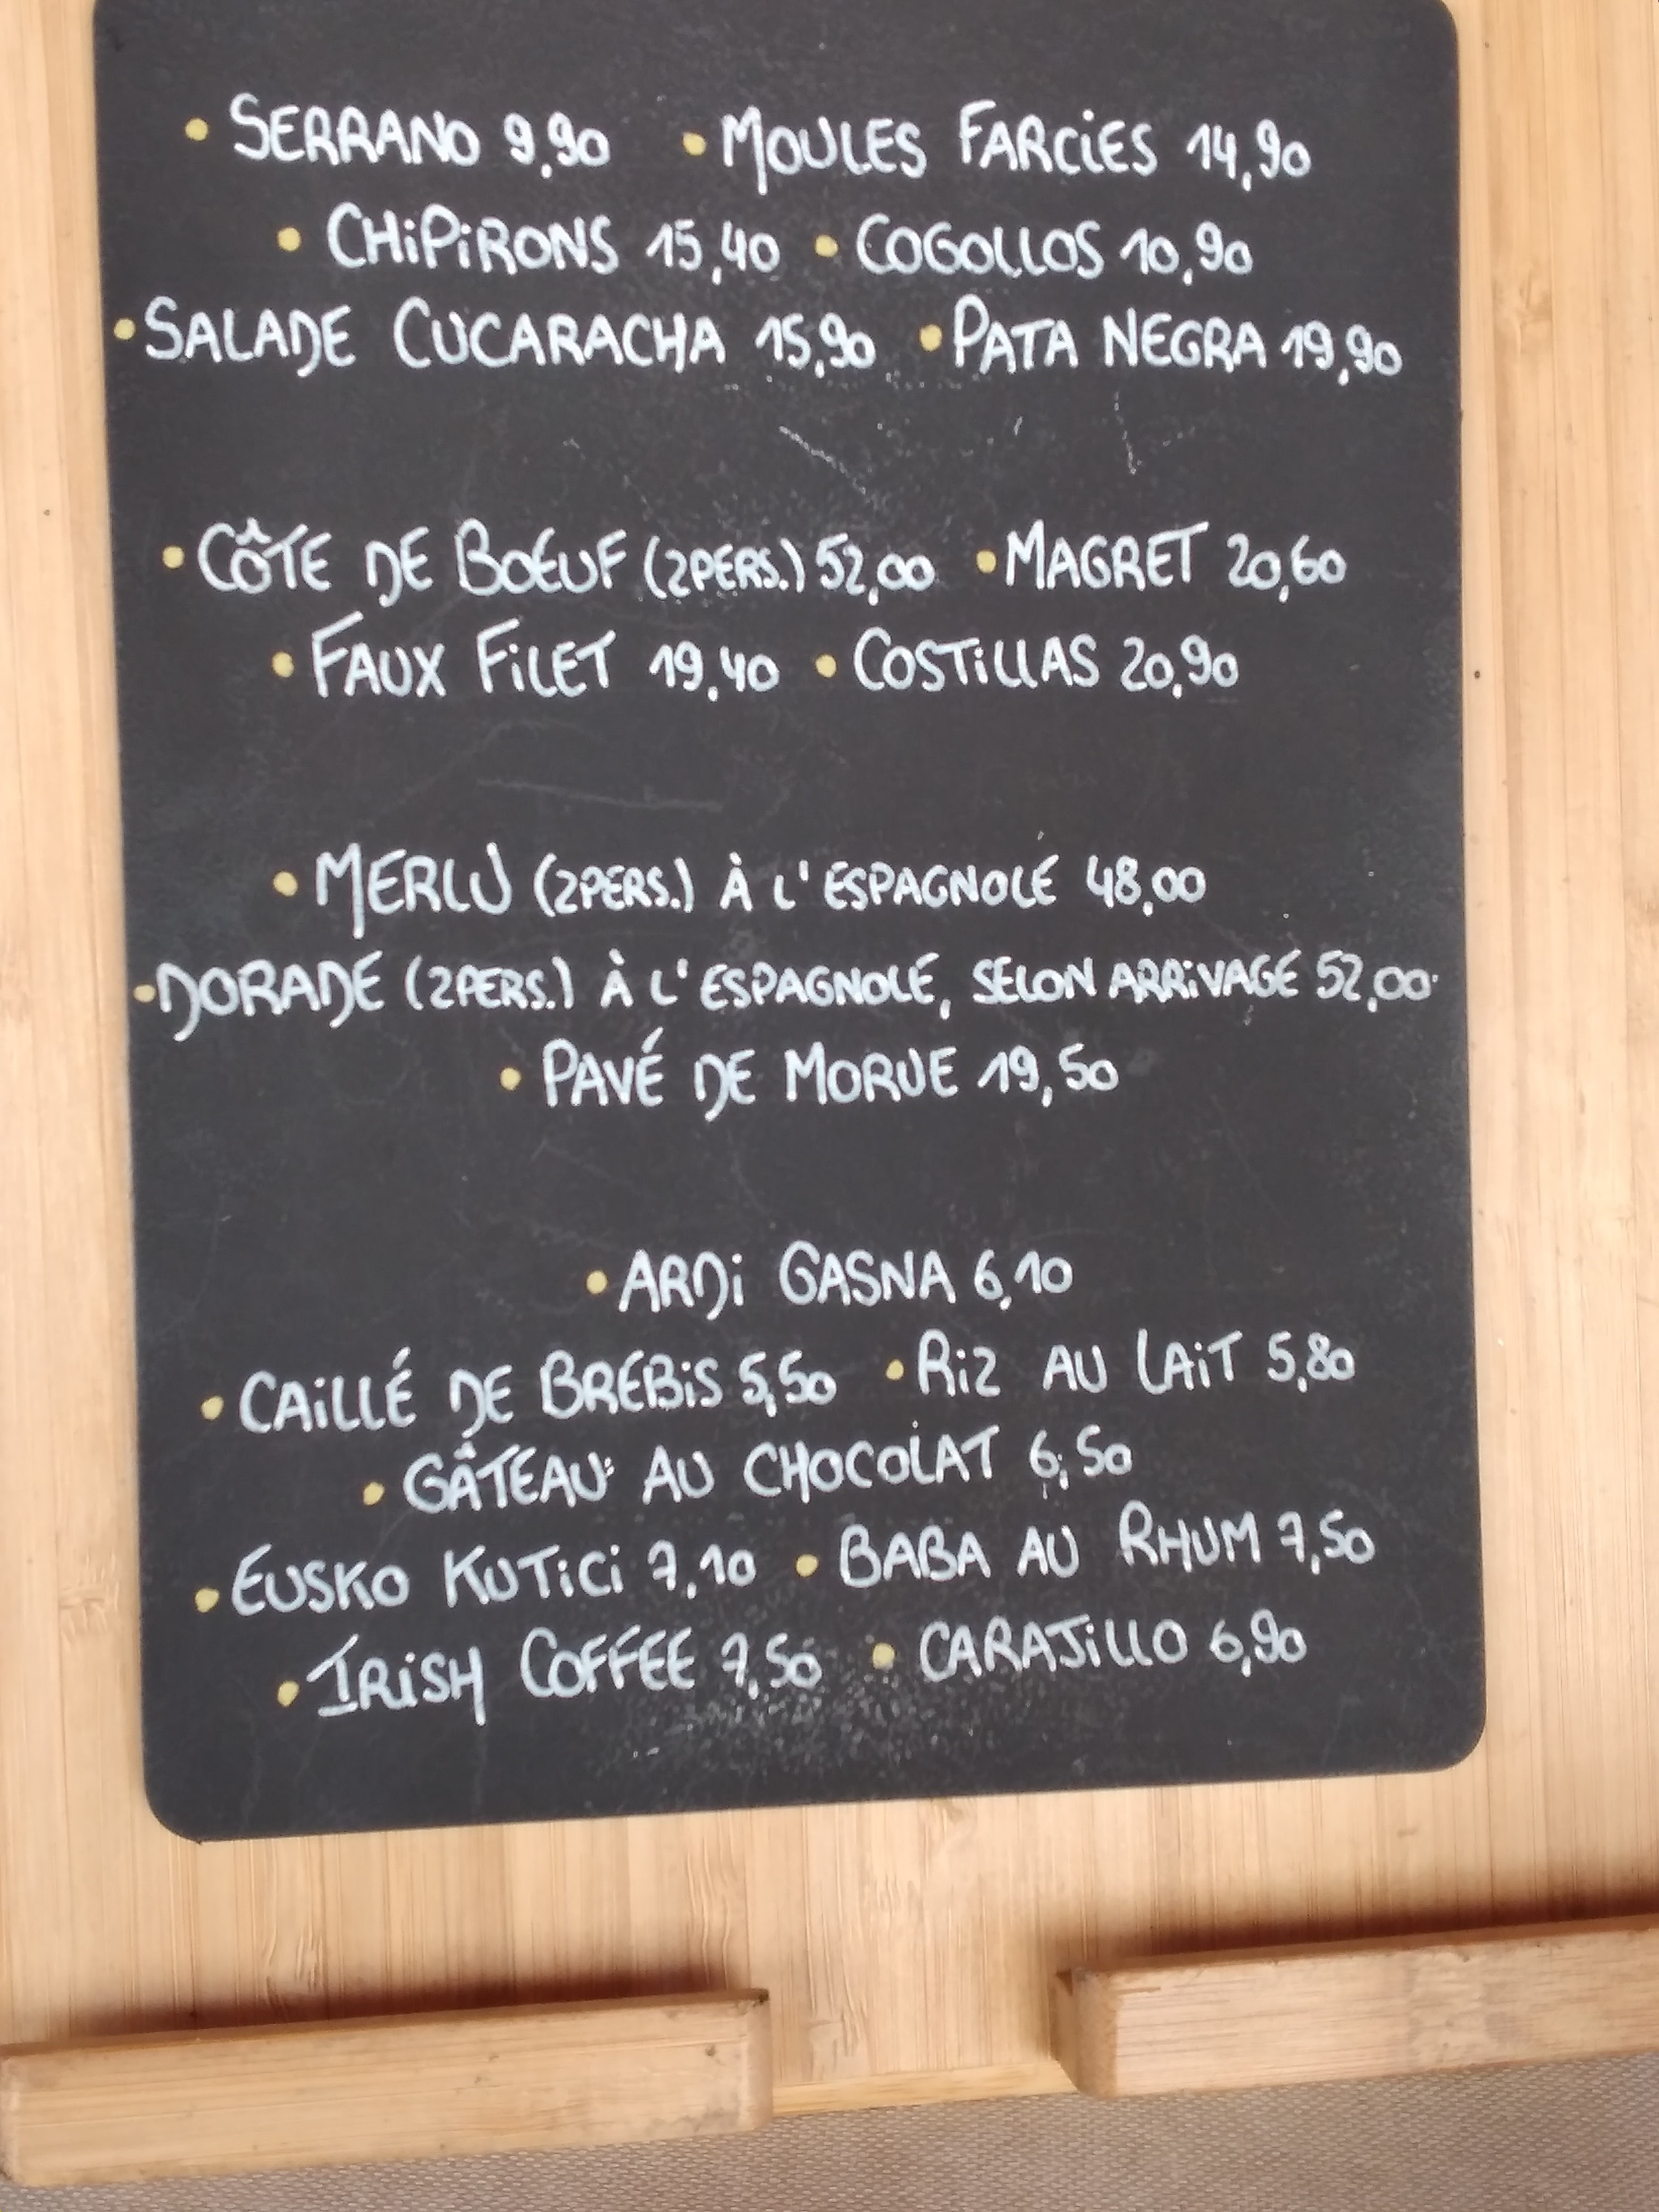 • SERRANO 9,90 • MOULES FARCIES 14,90
• CHIPIRONS 15,40 • COGOLLOS 10,90
• SALADE CUCARACHA 15,90 • PATA NEGRA 19,90
• CÔTE DE BOEUF (2PERS.) 52,00 • MAGRET 20,60
• FAUX FILET 19,40 • COSTILLAS 20,90
• MERLU (2PERS.) À L'ESPAGNOLE 48,00
• DORADE (2PERS.) À L'ESPAGNOLE, SELON ARRIVAGE 52,00
• PAVÉ DE MORUE 19,50
• ARDI GASNA 6,10
• CAILLÉ DE BREBIS 5,50 • RIZ AU LAIT 5,80
• GÂTEAU AU CHOCOLAT 6,50
• EUSKO KUTICI 7,10 • BABA AU RHUM 7,50
• IRISH COFFEE 7,50 • CARAJILLO 6,90